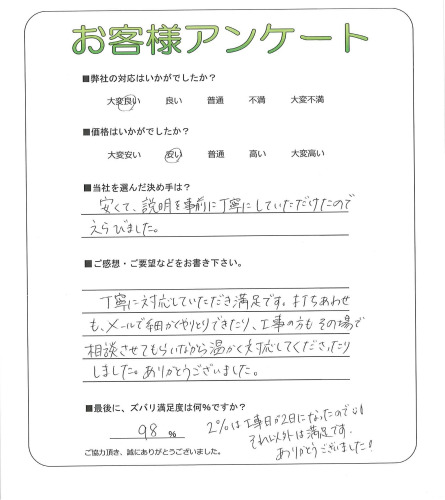 お客様アンケート
■弊社の対応はいかがでしたか？
大変良い　良い　普通　不満　大変不満
■価格はいかがでしたか？
大変安い　安い　普通　高い　大変高い
■当社を選んだ決め手は？
安くて、説明を事前に丁寧にしていただけたので
えらびました。
■ご感想・ご要望などをお書き下さい。
丁寧に対応していただき満足です。打ちあわせ
も、メールで細かくやりとりできたり、工事の方もその場で
相談させてもらいながら温かく対応してくださったり
しました。ありがとうございました。
■最後に、ズバリ満足度は何%ですか？
98 %
2%は工事日が2日になったので
それ以外は満足です。
ありがとうございました!
ご協力頂き、誠にありがとうございました。